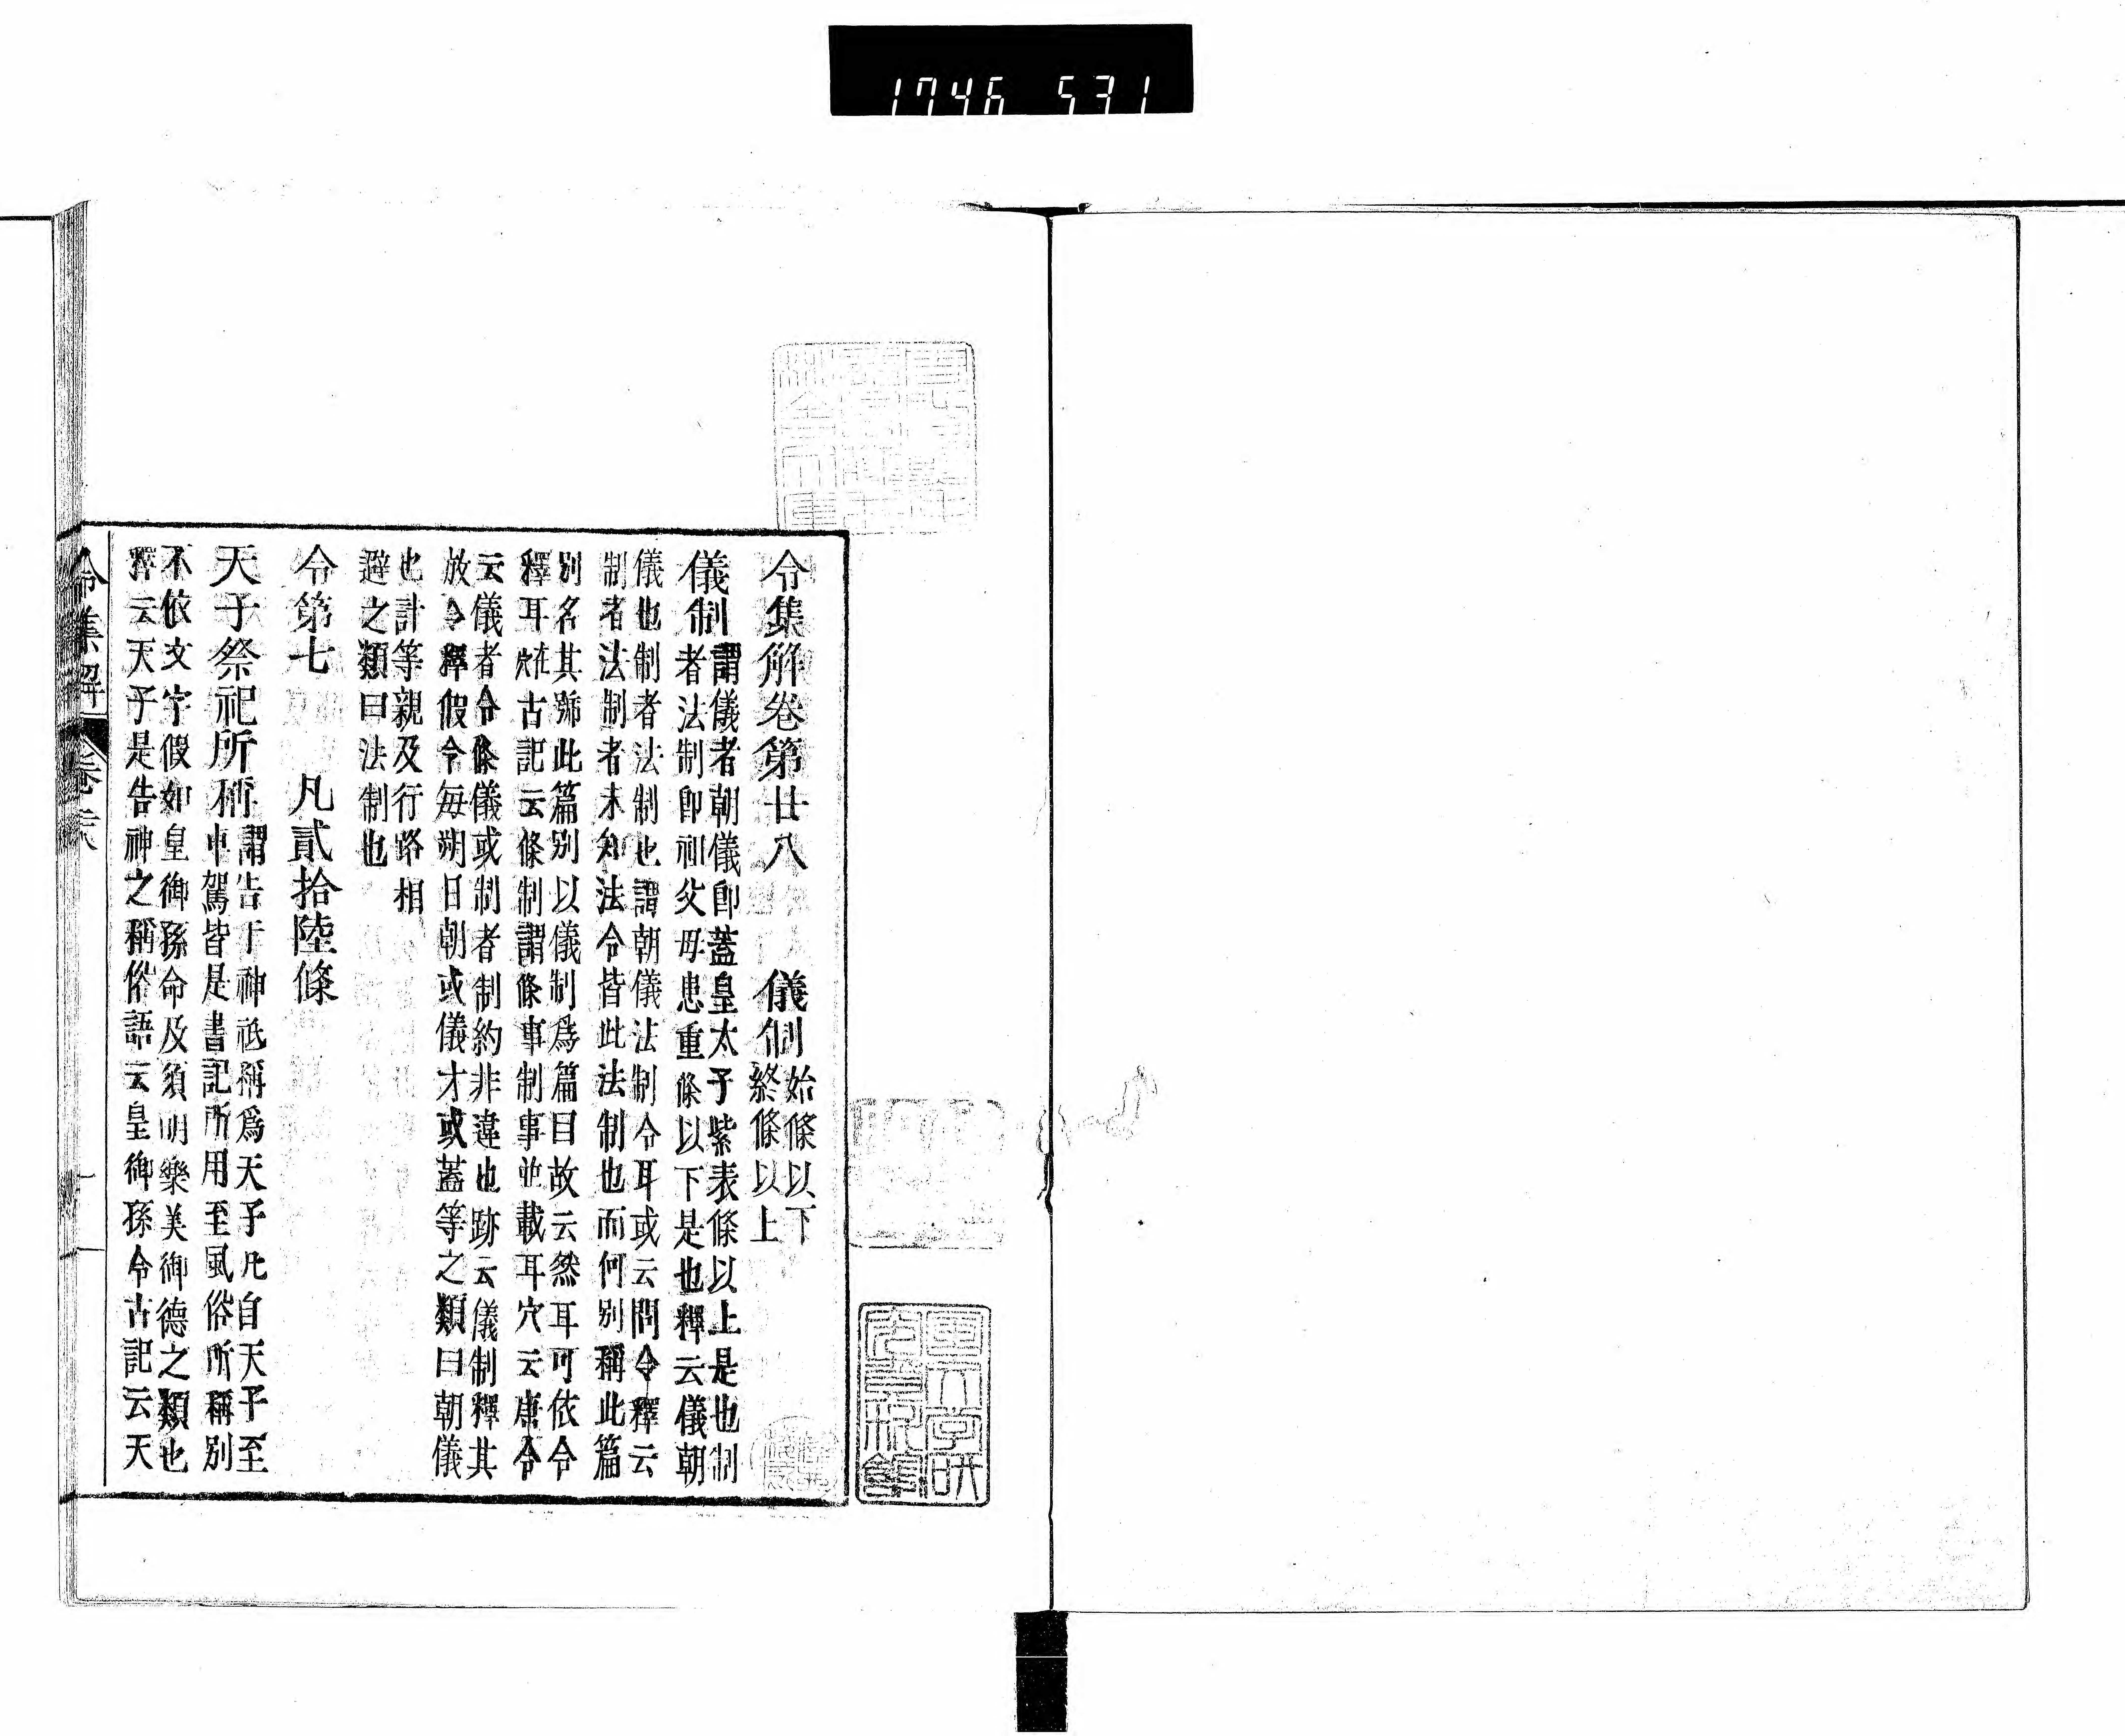 1746 531
令集解卷第廿八 儀制 始條以下
終條以上
儀制 謂儀者朝儀卽蓋皇太子紫表條以上是也制
者法制卽祖父母患重條以下是也釋云儀朝
儀也制者法制也謂朝儀法制令耳或云問令釋云
制者法制者未知法令皆此法制也而何別稱此篇
別名其號此篇別以儀制爲篇目故云然耳可依令
釋耳在穴古記云條制謂條事制事並載耳穴云唐令
云儀者令條儀或制者制約非違也跡云儀制釋其
放令釋假令每朔日朝或儀才或蓋等之類曰朝儀
也計等親及行路相
避之類曰法制也
令第七 凡貳拾陸條
天子祭祀所稱 謂告于神祇稱爲天子凡自天子至
車駕皆是書記所用至風俗所稱別
不依文字假如皇御孫命及須明樂美御德之類也
釋云天子是告神之稱俗語云皇御孫令古記云天
令集解 卷廿八 一